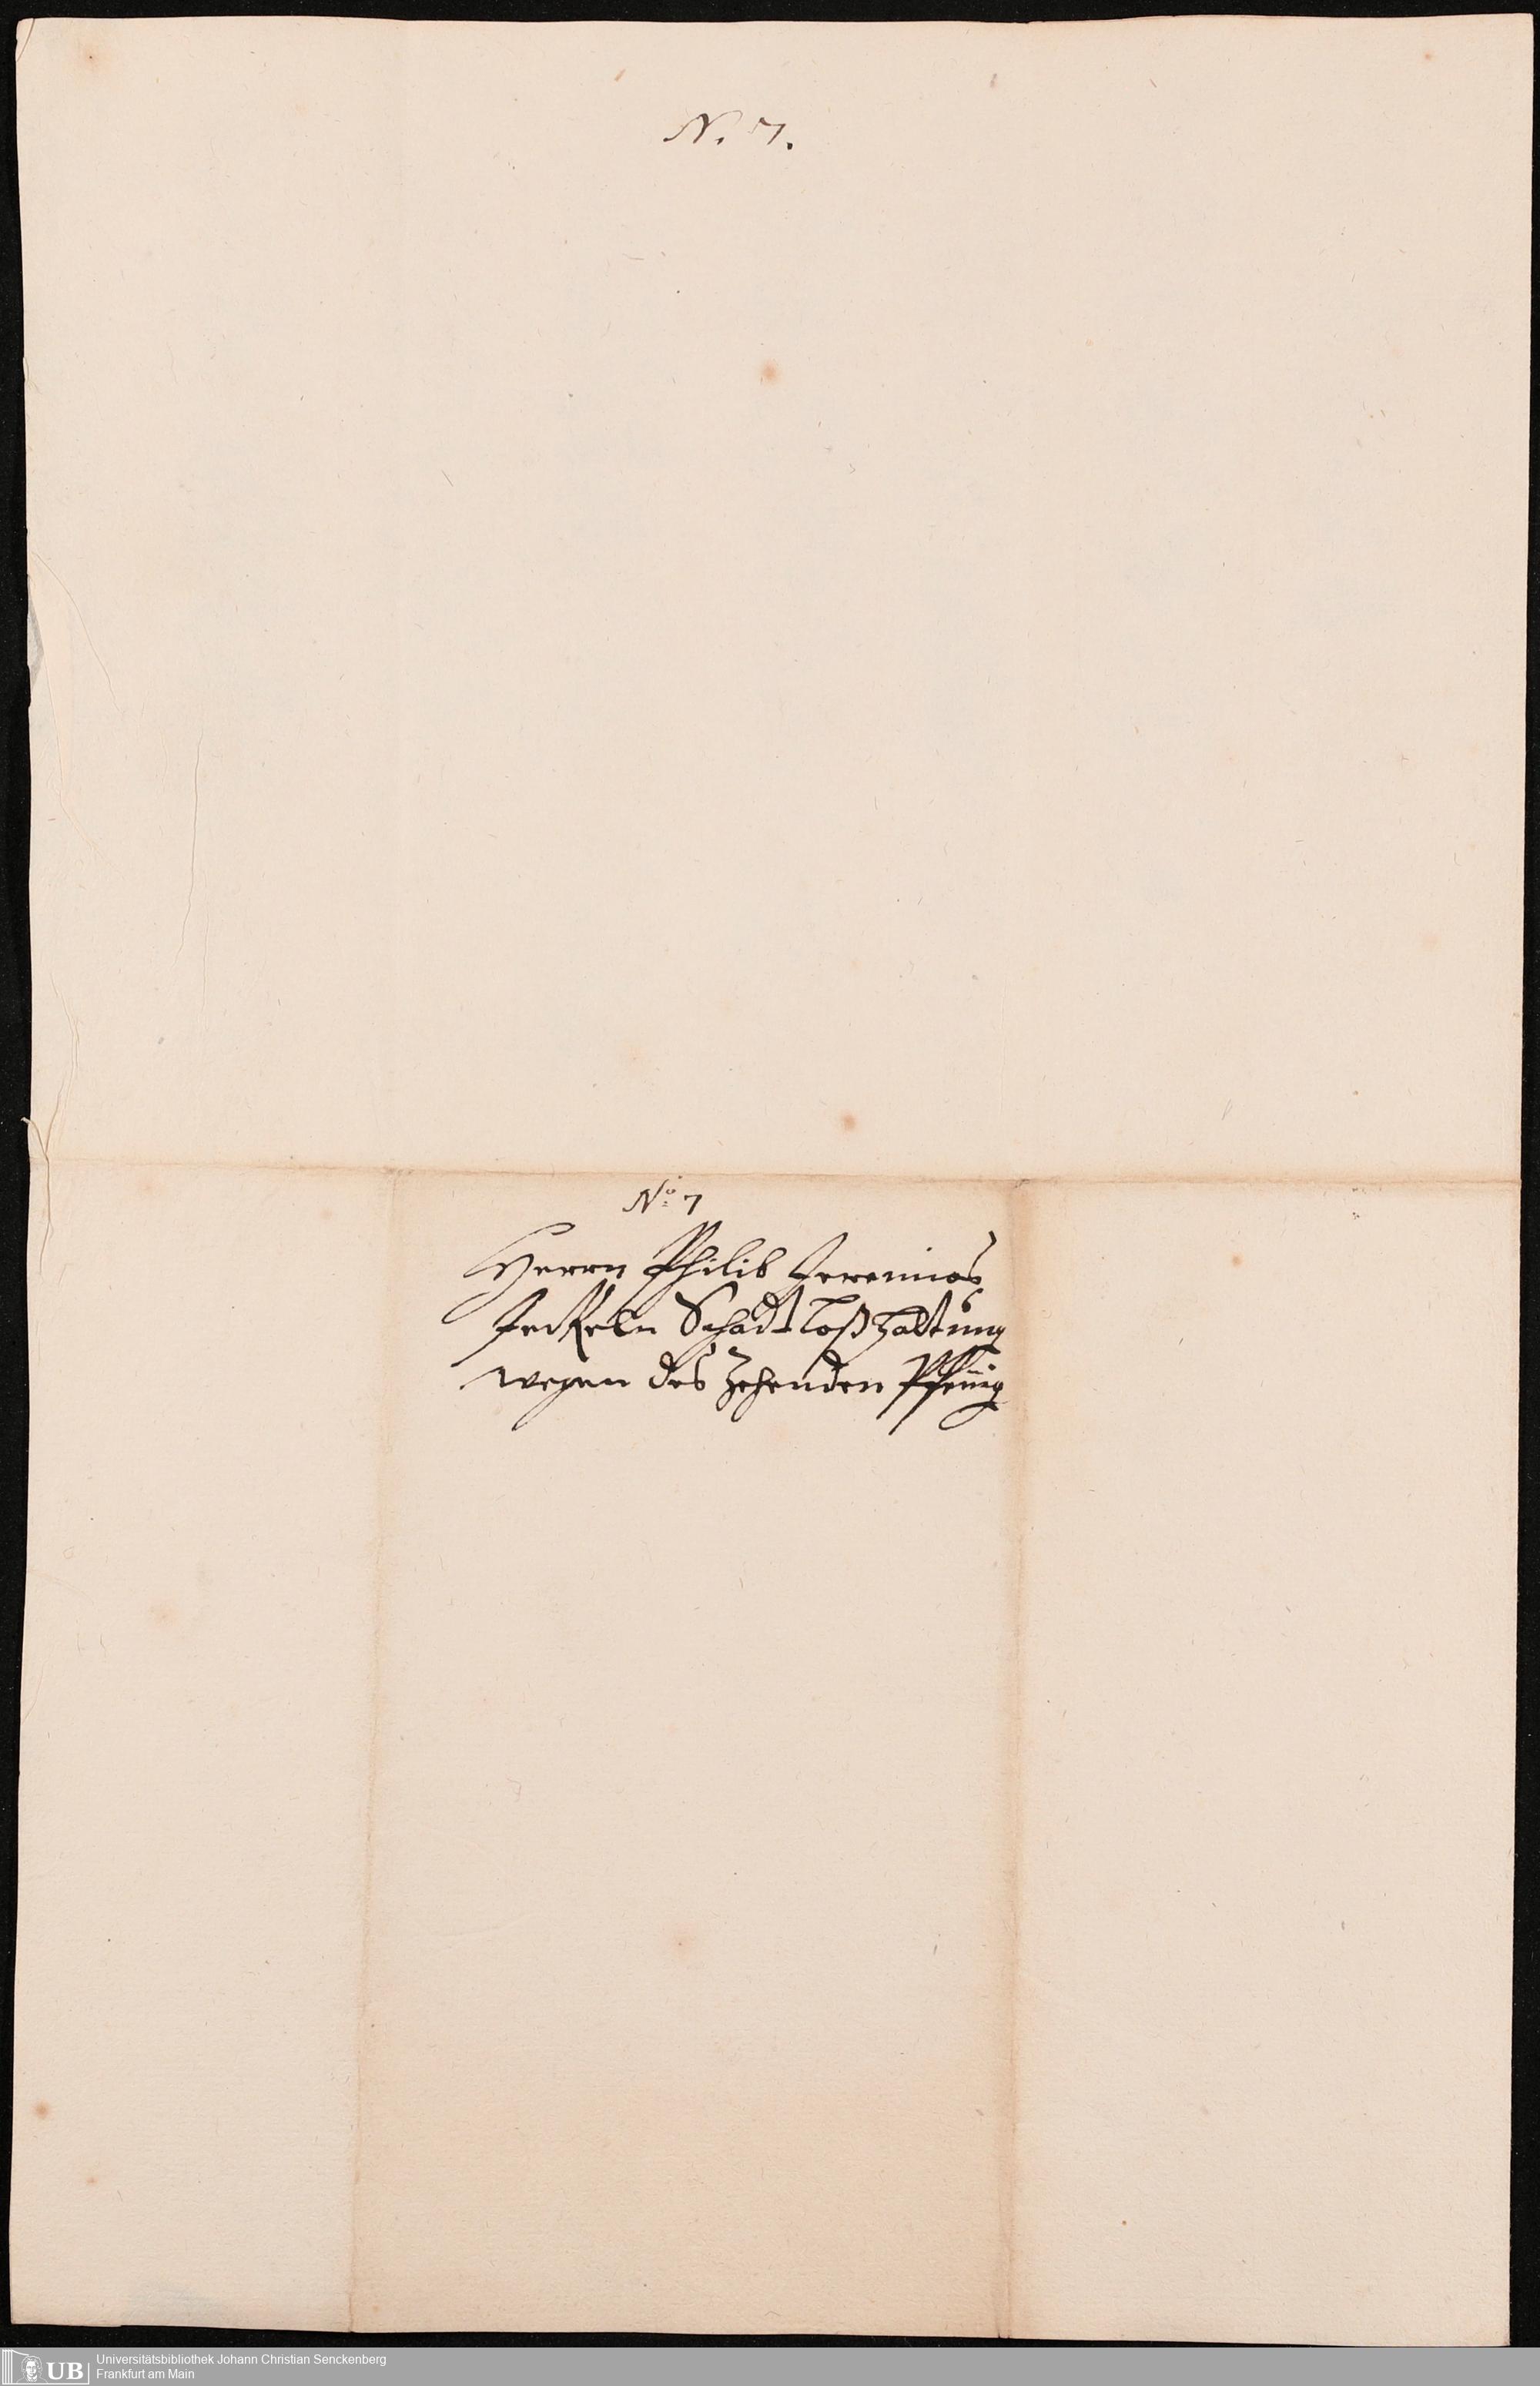 N. 7.
No 7
Herrn Philib Jeremias
Jeckeln Schadtloßhaltung
wegen des Zehenden Pfenig
UB
Universitätsbibliothek Johann Christian Senckenberg
Frankfurt am Main